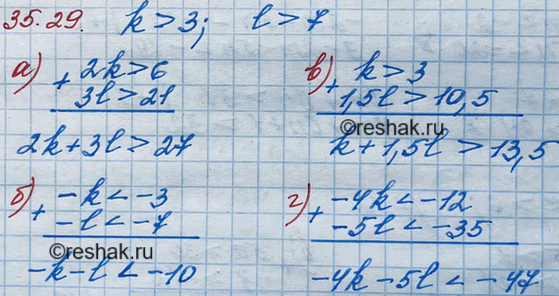 35.29. k > 3; l > 7
а) + 2k > 6
3l > 21
2k + 3l > 27
в) + k > 3
1,5l > 10,5
©reshak.ru
k + 1,5l > 13,5
б) + -k < -3
-l < -7
©reshak.ru
-k - l < -10
г) + -4k < -12
-5l < -35
-4k - 5l < -47